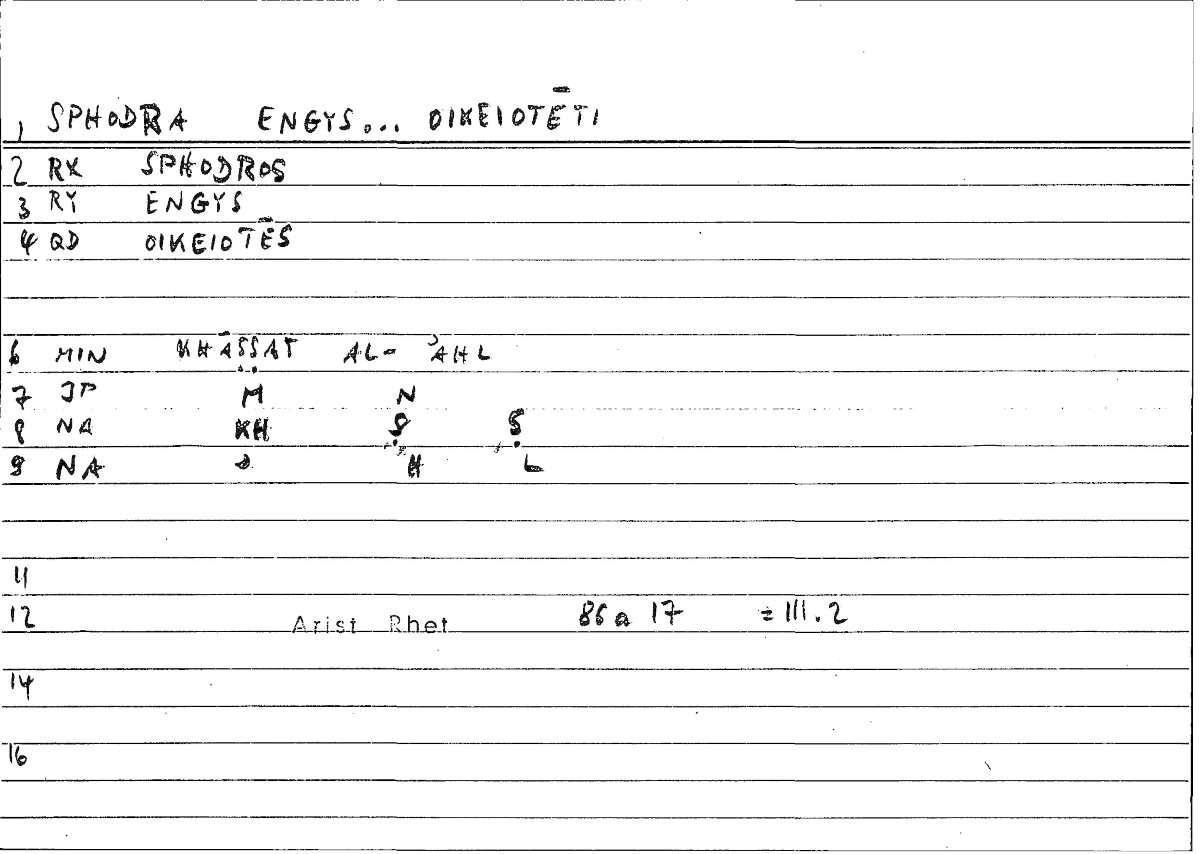 1 SPHODRA ENGYS... OIKEIOTĒTI
2 RX SPHODROS
3 RY ENGYS
4 QD OIKEIOTĒS
6 MIN KHĀṢṢAT AL- ʾAHL
7 JP M N
8 NA KH Ṣ Ṣ
9 NA ʾ H L
11
12 Arist Rhet 86a 17 = 111.2
14
16